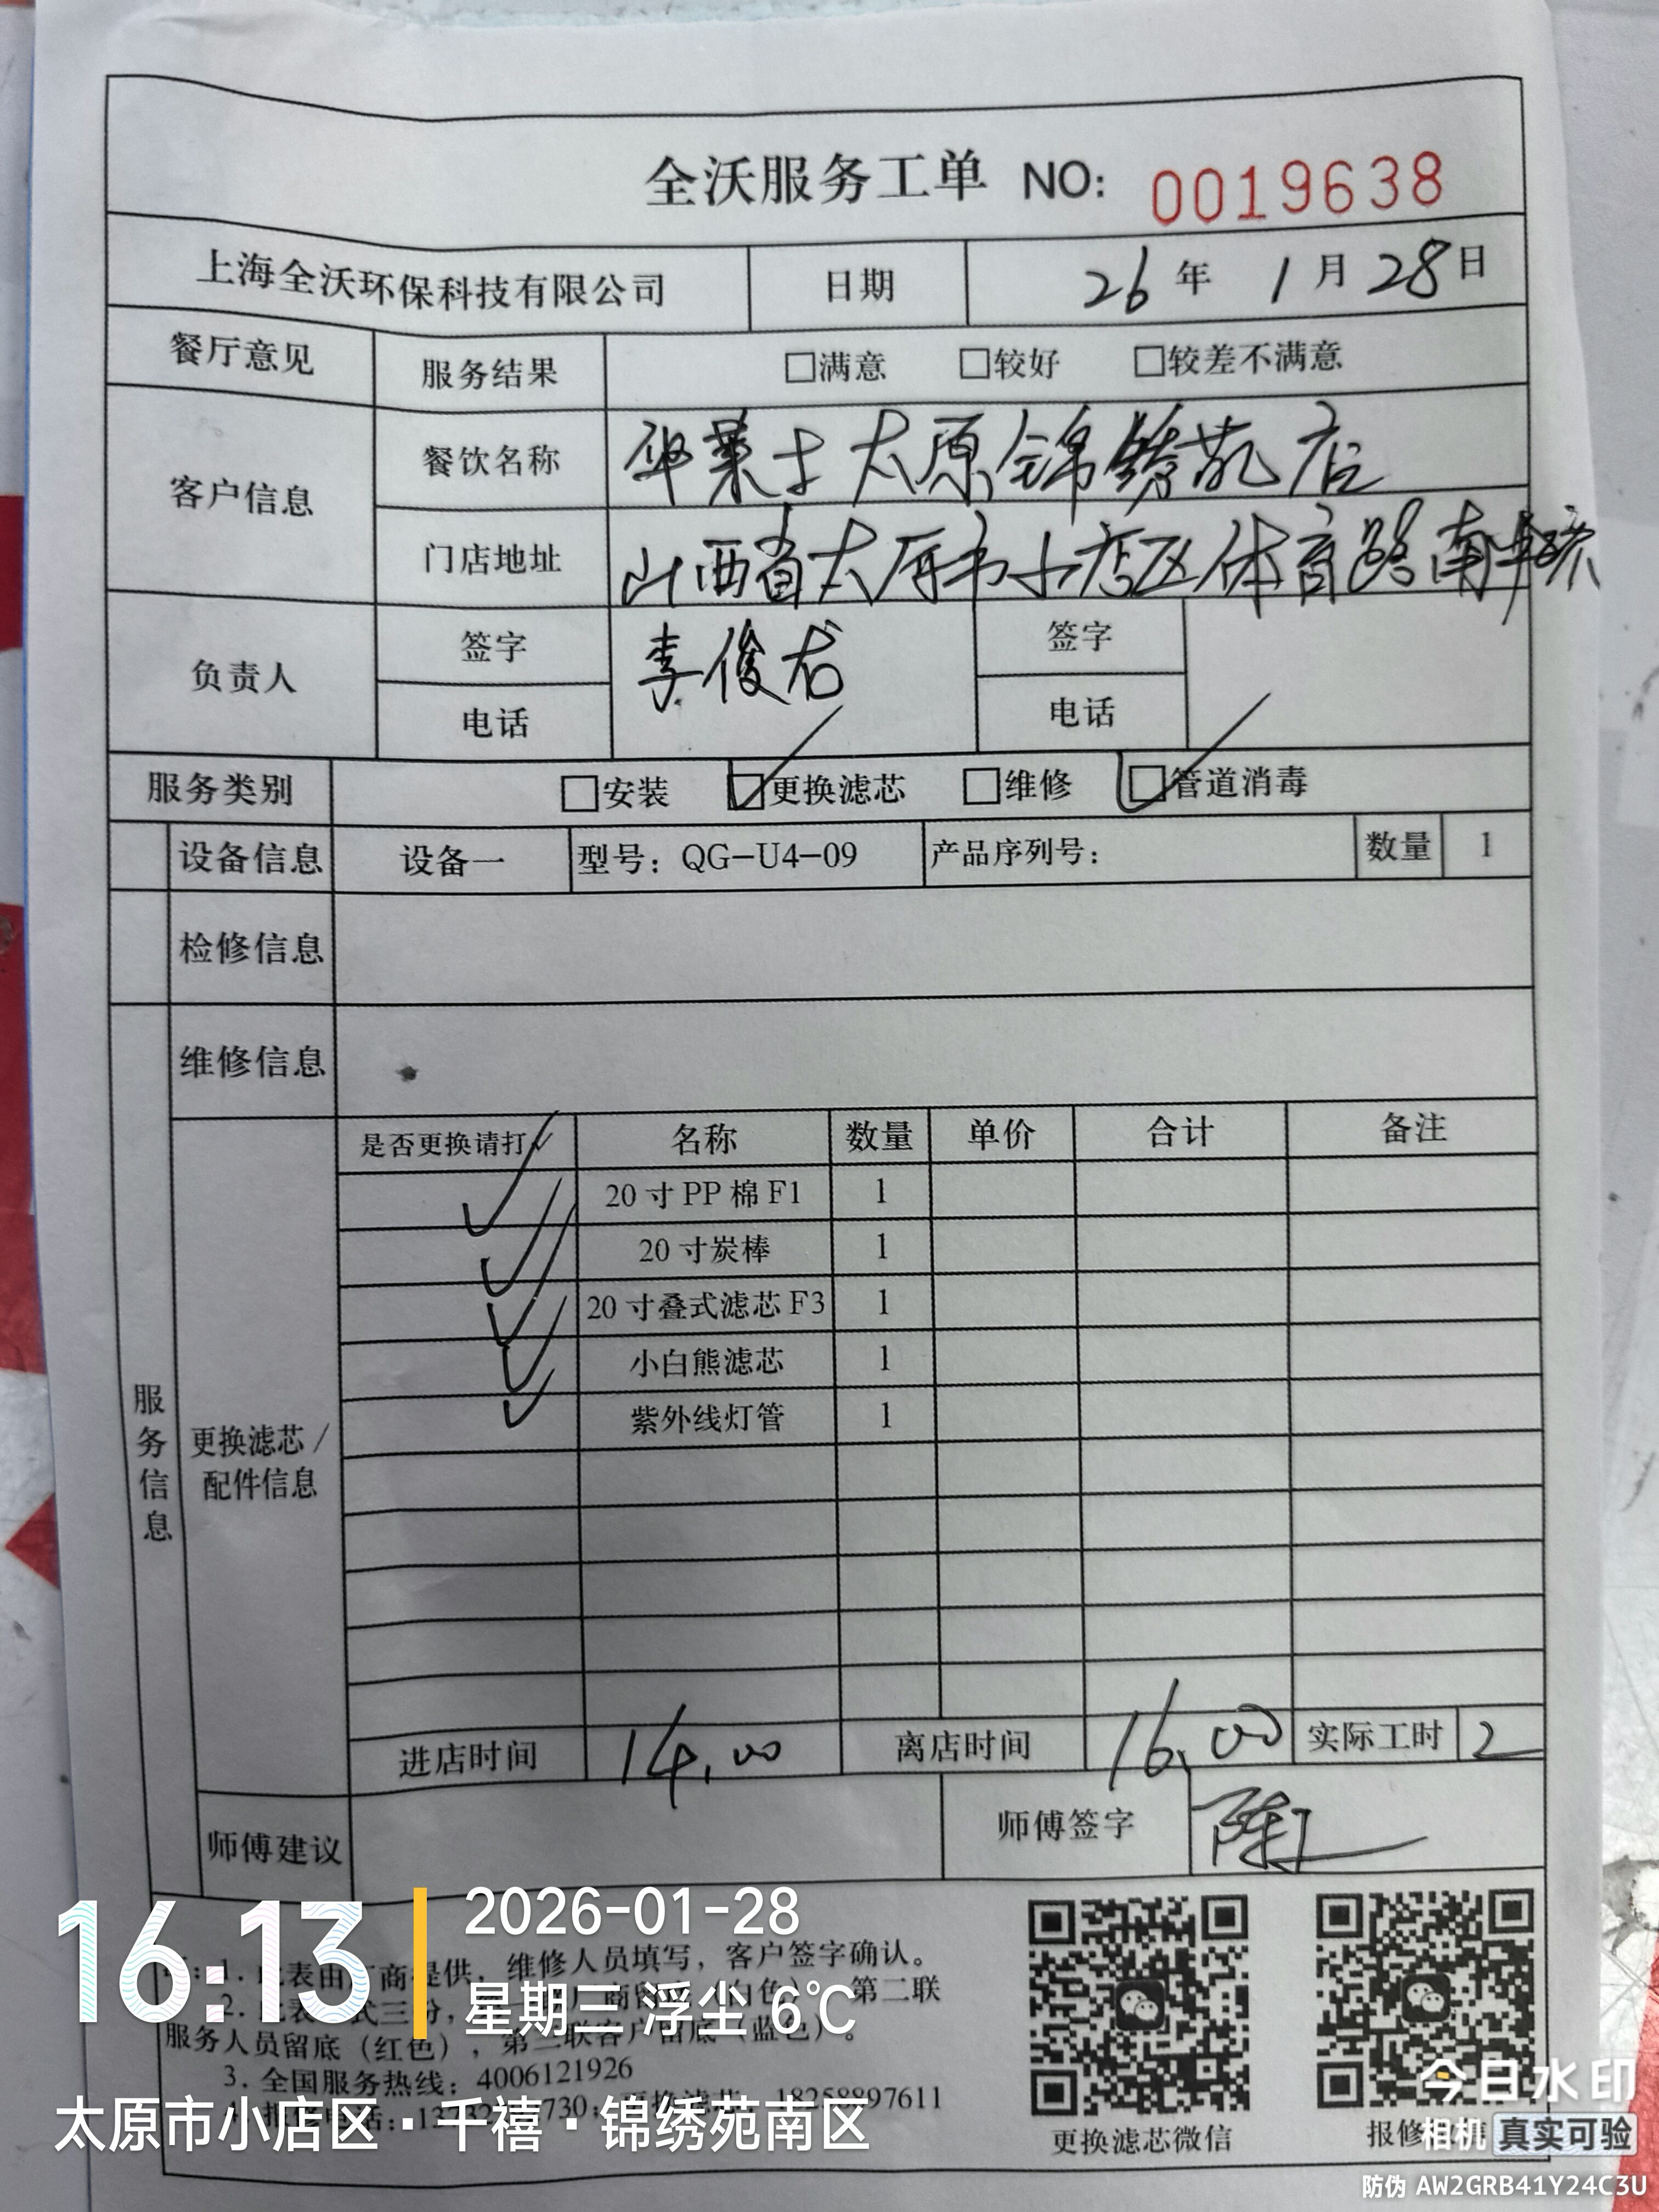 全沃服务工单 NO: 0019638
上海全沃环保科技有限公司 日期 26年 1月28日
餐厅意见 服务结果 □满意 □较好 □较差不满意
客户信息 餐饮名称 华莱士太原锦绣苑店
门店地址 山西省太原市小店区体育路南
负责人 签字 李俊龙 签字
电话 电话
服务类别 □安装 ☑更换滤芯 □维修 ☑管道消毒
设备信息 设备一 型号：QG-U4-09 产品序列号： 数量 1
检修信息
维修信息
服务信息
更换滤芯/配件信息
是否更换请打√ 名称 数量 单价 合计 备注
✓ 20寸PP棉F1 1
✓ 20寸炭棒 1
✓ 20寸叠式滤芯F3 1
✓ 小白熊滤芯 1
✓ 紫外线灯管 1
进店时间 14.00 离店时间 16.00 实际工时 2
师傅建议 师傅签字 陈工
1.此表由厂商提供，维修人员填写，客户签字确认。
2.此表 式三份， 商留底（白色） 第二联
服务人员留底（红色），第三联客户留底（蓝色）。
3.全国服务热线：4006121926
4.报修电话： 730；更换滤芯 18258897611
更换滤芯微信 报修
16:13
2026-01-28
星期三 浮尘 6℃
太原市小店区·千禧·锦绣苑南区
今日水印
相机 真实可验
防伪 AW2GRB41Y24C3U